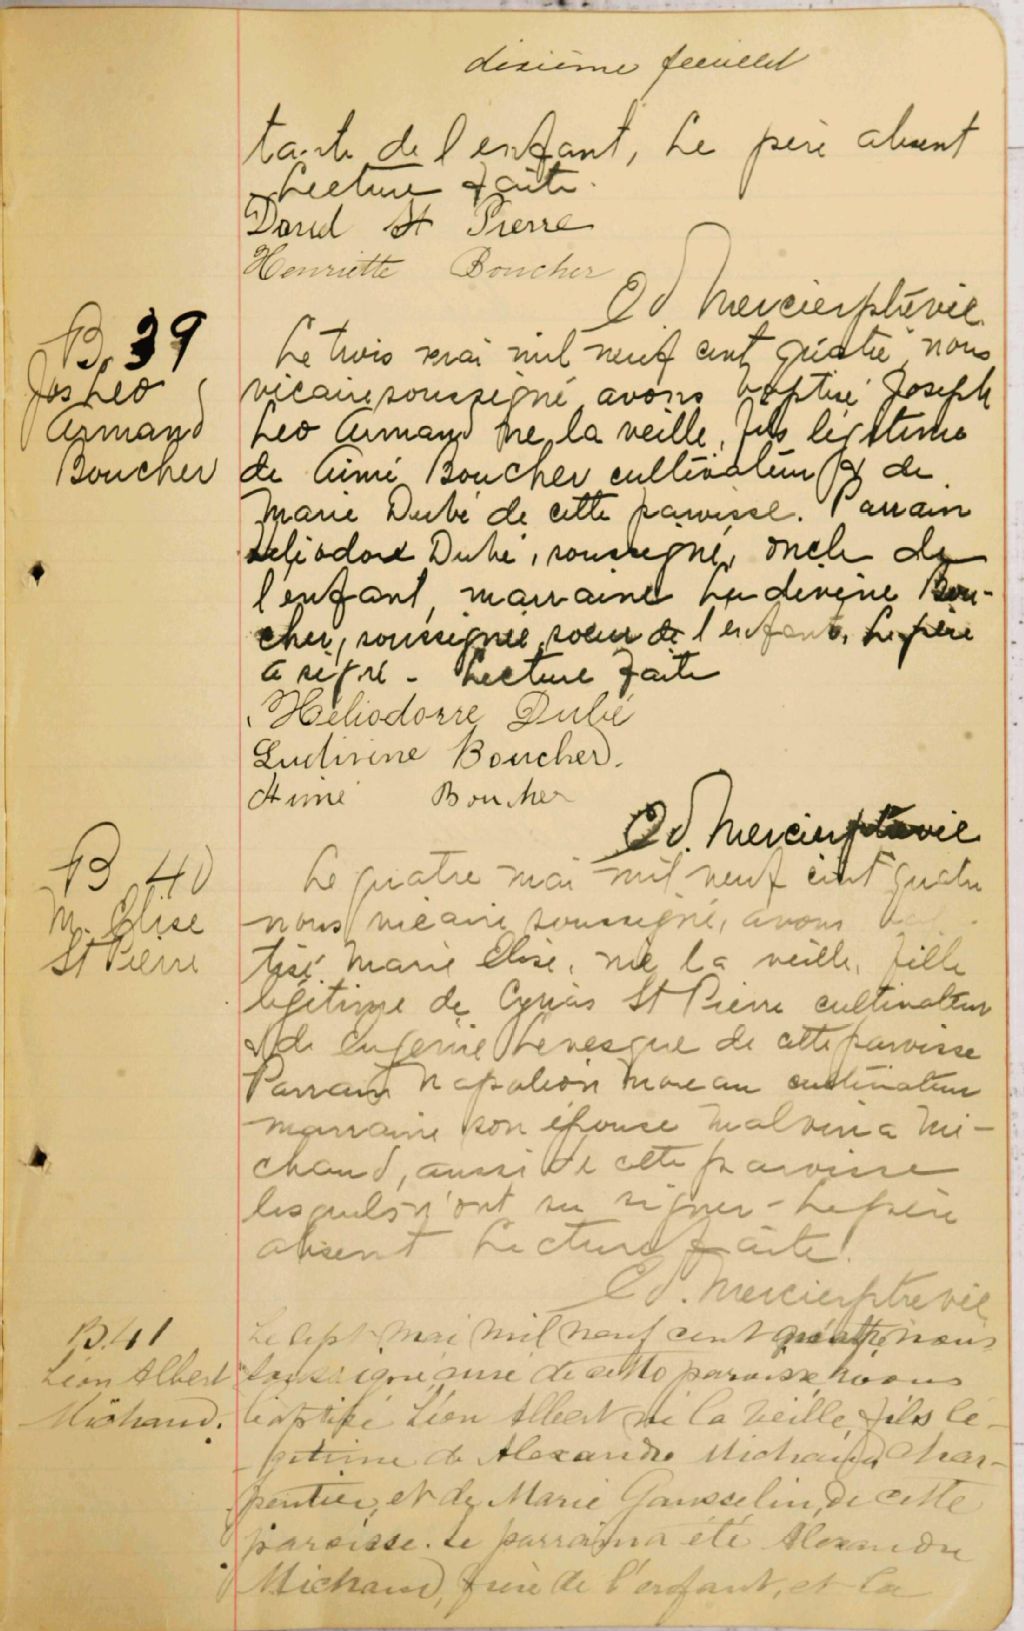 dixième feuillet
tante de l'enfant, Le père absent
Lecture faite.
David St Pierre
Henriette Boucher
Ed Mercier ptre vic
B. 39
Jos Leo
Armand
Boucher
Le trois mai mil neuf cent quatre nous
vicaire soussigné avons baptisé Joseph
Leo Armand né la veille, fils légitime
de Aimé Boucher cultivateur & de
Marie Dubé de cette paroisse. Parrain
Héliodore Dubé, soussigné, oncle de
l'enfant, marraine Ludivine Bou-
cher, soussignée, soeur de l'enfant, Le père
a signé - Lecture faite
Héliodorre Dubé
Ludivine Boucher.
Aimé Boucher
Ed. Mercier ptre vic
B 40
M. Elise
St Pierre
Le quatre mai mil neuf cent quatre
nous vicaire soussigné, avons bap-
tisé Marie Elise, née la veille, fille
légitime de Cyrias St Pierre cultivateur
& de Eugénie Levesque de cette paroisse
Parrain Napoléon Moreau cultivateur
marraine son épouse Malvina Mi-
chaud, aussi de cette paroisse
lesquels n'ont su signer - Le père
absent Lecture faite.
Ed. Mercier ptre vic
B.41
Léon Albert
Michaud.
Le sept mai mil neuf cent quatre nous
soussigné curé de cette paroisse avons
baptisé Léon Albert né la veille, fils lé-
gitime de Alexandre Michaud, char-
pentier, et de Marie Gausselin, de cette
paroisse. Le parrain a été Alexandre
Michaud, frère de l'enfant, et la